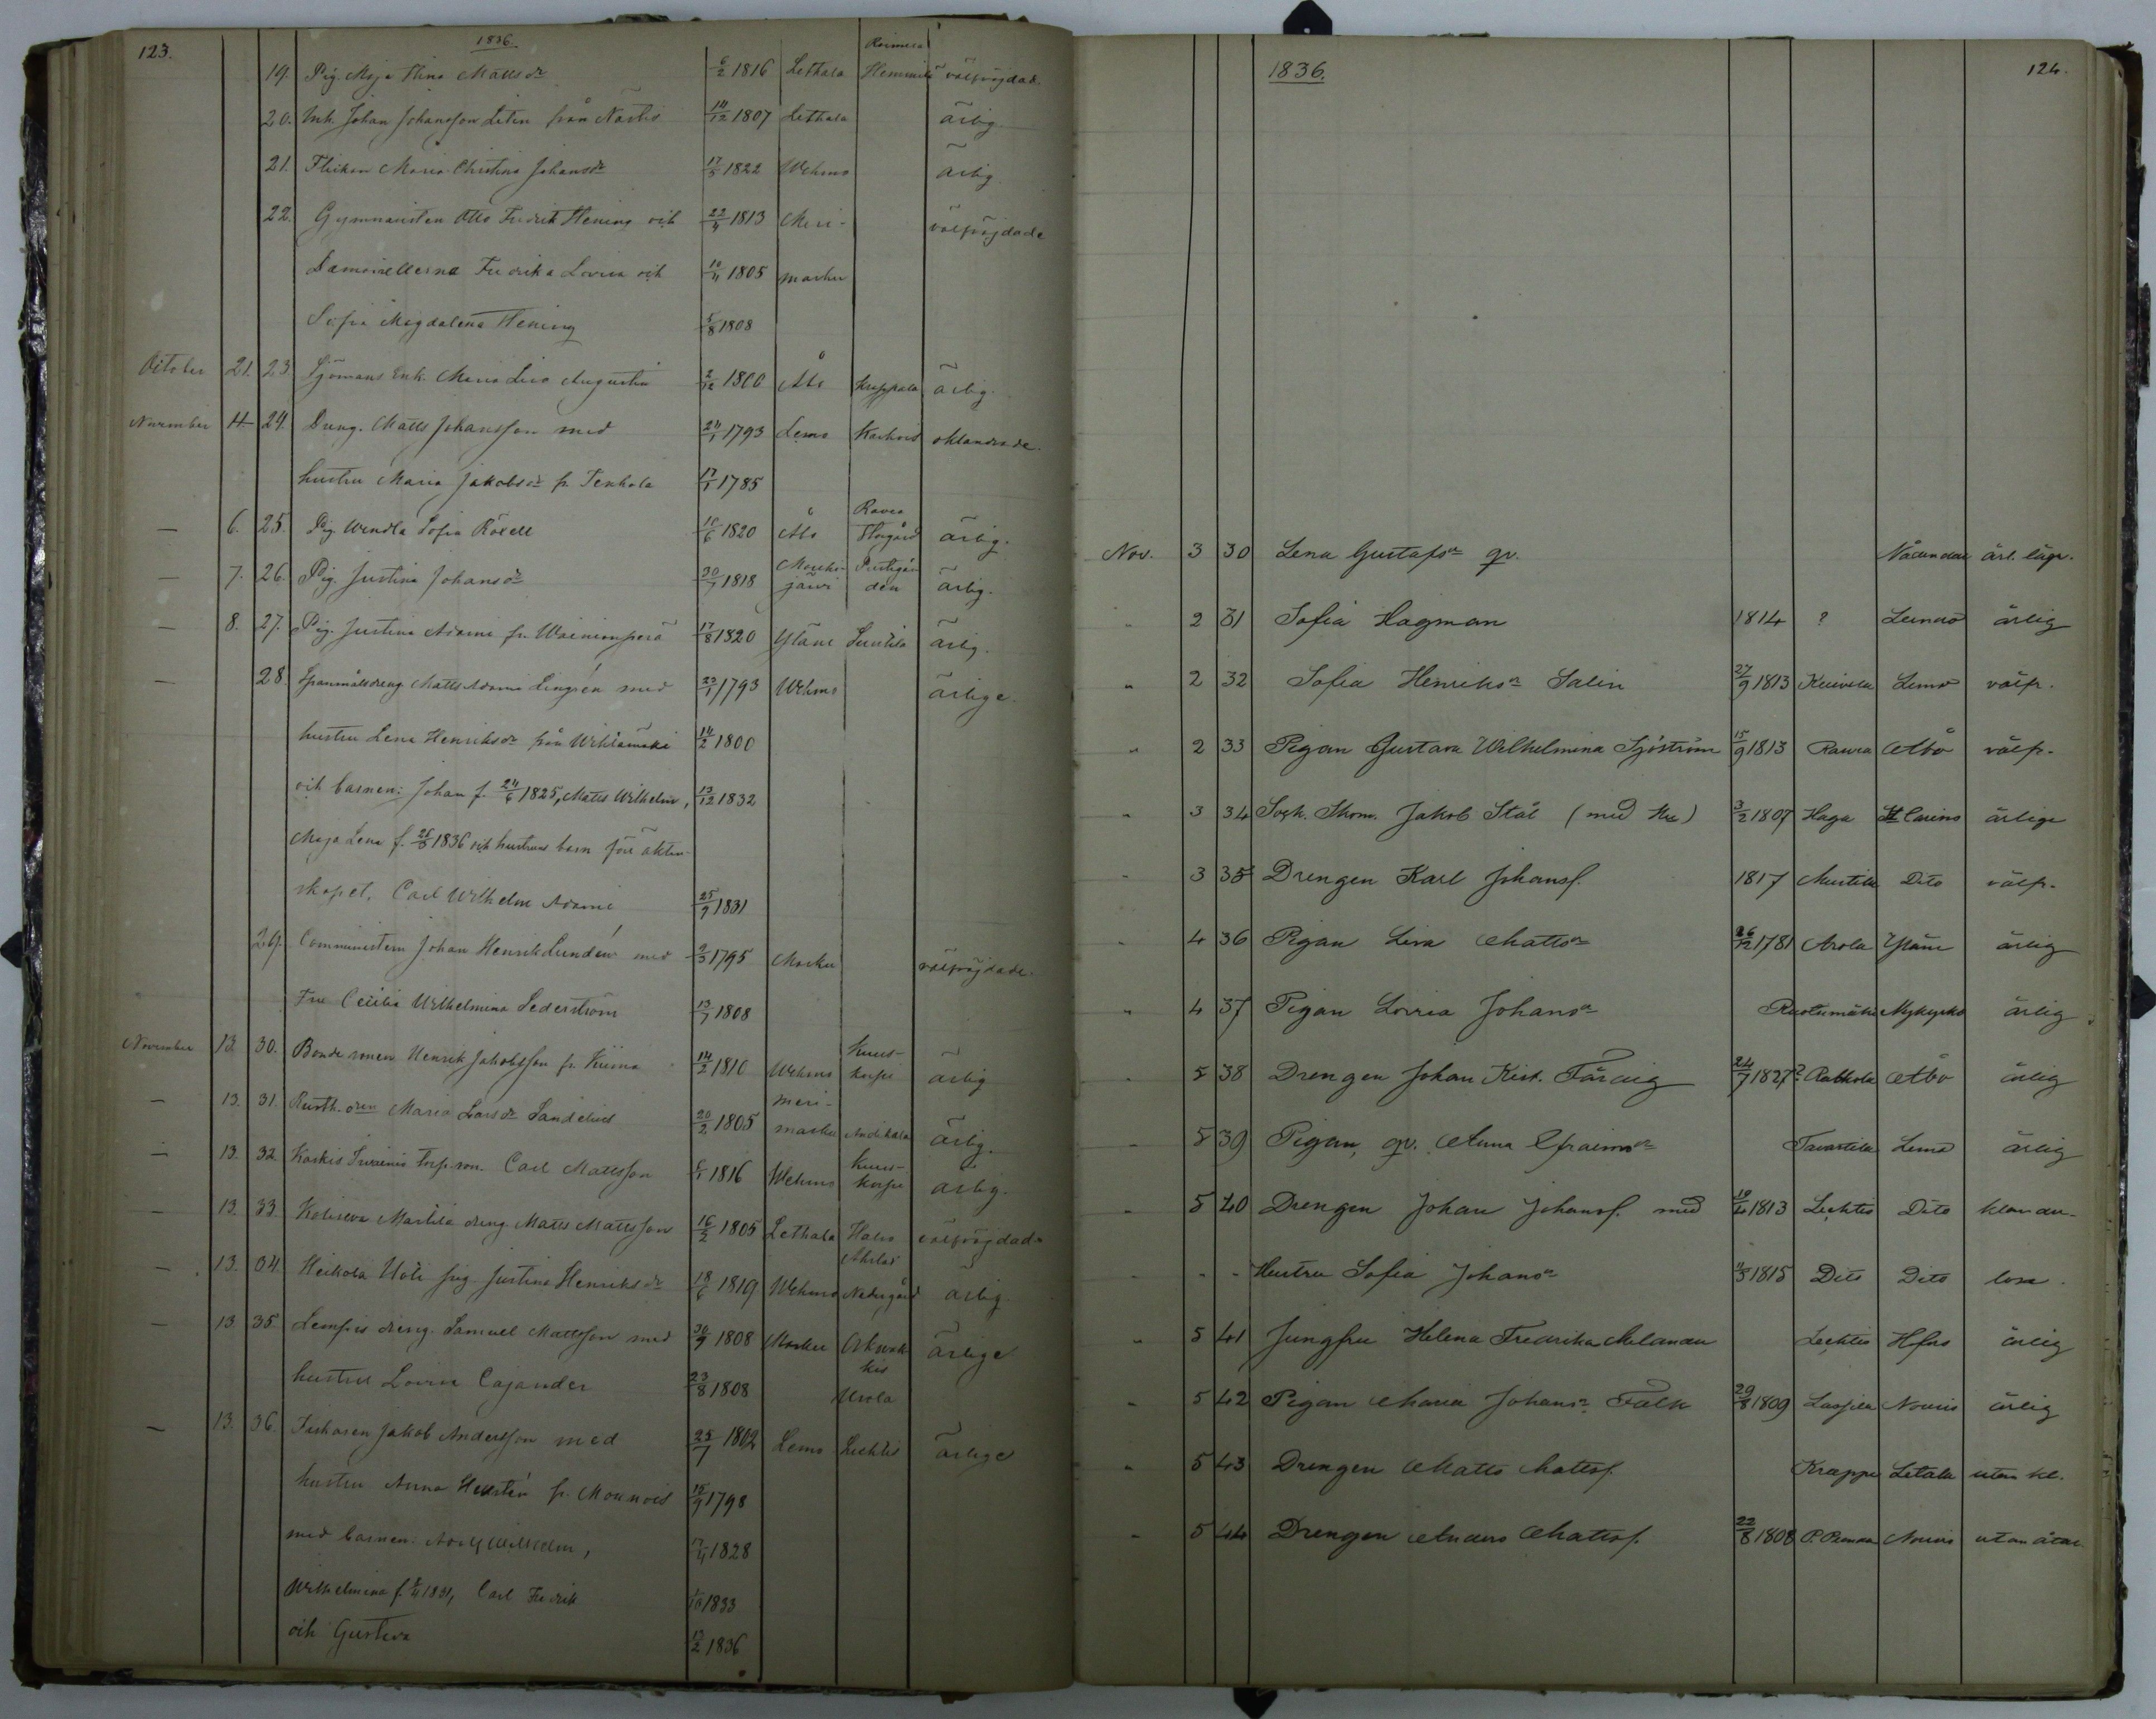 123.
1836.
19. Pig. Maja Stina Mattsdr 6/2 1816 Lethala Hemmilä välfrejdad.
20. Inh. Johan Johansson Liten från 14/12 1807 Lethala ärlig
21. Flickan Maria Christina Johansdr 17/5 1822 Wehmo ärlig.
22. Gymnasisten Otto Fredrik Hening och 22/4 1813 Meri- välfrejdade
Demoisellerna Fredrika Lovisa och 10/4 1805 masku
Sofia Magdalena Hening 5/8 1808
October 21. 23. Sjömans Enk. Maria Lisa Augustin 2/12 1800 Åbo ärlig.
November 4 24. Dreng. Matts Johansson med 24/1 1793 Lemo oklandrade.
hustru Maria Jakobsdr fr. Tenhola 17/1 1785
— 6. 25. Pig. Wendla Sofia Roxell 10/6 1820 Åbo ärlig.
— 7. 26. Pig. Justina Johansdr 30/7 1818 Mouhi-
järvi Prestgår-
den ärlig.
— 8. 27. Pig. Justina Adami fr. Wäinionperä 17/8 1820 Yläne ärlig.
— 28. Spanmålsdreng Matts Adami Lingrén med 22/1 1793 Wehmo ärlige.
hustru Lena Henriksdr från 14/2 1800
och barnen: Johan f. 24/6 1825, Matts Wilhelm, 13/12 1832
Maja Lena f. 26/5 1836 och hustruns barn före äkten-
skapet, Carl Wilhelm Adami 25/9 1831
29. Comministern Johan Henrik Lundén med 9/3 1795 Masku välfrejdade.
Fru Cecilia Wilhelmina Sederström 13/7 1808
November 13. 30. Bonde sonen Henrik Jakobsson fr. 14/2 1810 Wehmo Kuus-
korpi ärlig
— 13. 31. Rusth. dren Maria Larsdr Sandelius 20/2 1805 Meri-
masku ärlig.
— 13. 32. torp. son. Carl Mattsson 1816 Wehmo Kuus-
korpi ärlig.
— 13. 33. Martila dreng Matts Mattsson 16/2 1805 Lethala välfrejdade
— 13. 34. Heikola pig Justina Henriksdr 18/6 1819 Wehmo Nedergård ärlig.
— 13. 35. Lempis dreng. Samuel Mattsson med 30/9 1808 Masku ärlige
hustru Lovisa Cajander 23/8 1808
— 13. 36. Fiskaren Jakob Andersson med 25/7 1802 Lemo Lechtis ärlige
hustru Anna Hellstén fr. Mounois 15/9 1798
med barnen: Adolf Wilhelm, 17/4 1828
Wilhelmina f. 1831, Carl Fredrik 1/10 1833
och Gustava 13/2 1836
1836. 124.
Nov. 3 30 Lena Gustafsdr qv. Nådendal ärl. lägr.
" 2 31 Sofia Hagman 1814 ? Lundo ärlig
" 2 32 Sofia Henriksdr Salin 27/9 1813 Lemo välfr.
" 2 33 Pigan Gustava Wilhelmina Sjöström 15/9 1813 Åbo välfr.
" 3 34 Sock. Skom. Jakob Stål (med Hu) 3/2 1807 Haga St Carins ärlige
" 3 35 Drengen Karl Johansf. 1817 Mustila Dito välfr.
" 4 36 Pigan Lisa Mattsdr 26/12 1781 Arola Yläne ärlig
" 4 37 Pigan Lovisa Johansdr ärlig
" 5 38 Drengen Johan Krist. Färdig 24/7 1827? Åbo ärlig
" 5 39 Pigan, qv. Anna Efraimsdr Tavastila Lemo ärlig
" 5 40 Drengen Johan Johansf. med 1813 Lechtis Dito klandr.
" - - Hustru Sofia Johansdr 1815 Dito Dito
" 5 41 Jungfru Helena Fredrika Melander Lechtis ärlig
" 5 42 Pigan Maria Johansdr Falk 29/8 1809 Nousis ärlig
" 5 43 Drengen Matts Mattsf. Letala utan kl.
" 5 44 Drengen Anders Mattsf. 22/8 1808 Nousis utan åtal